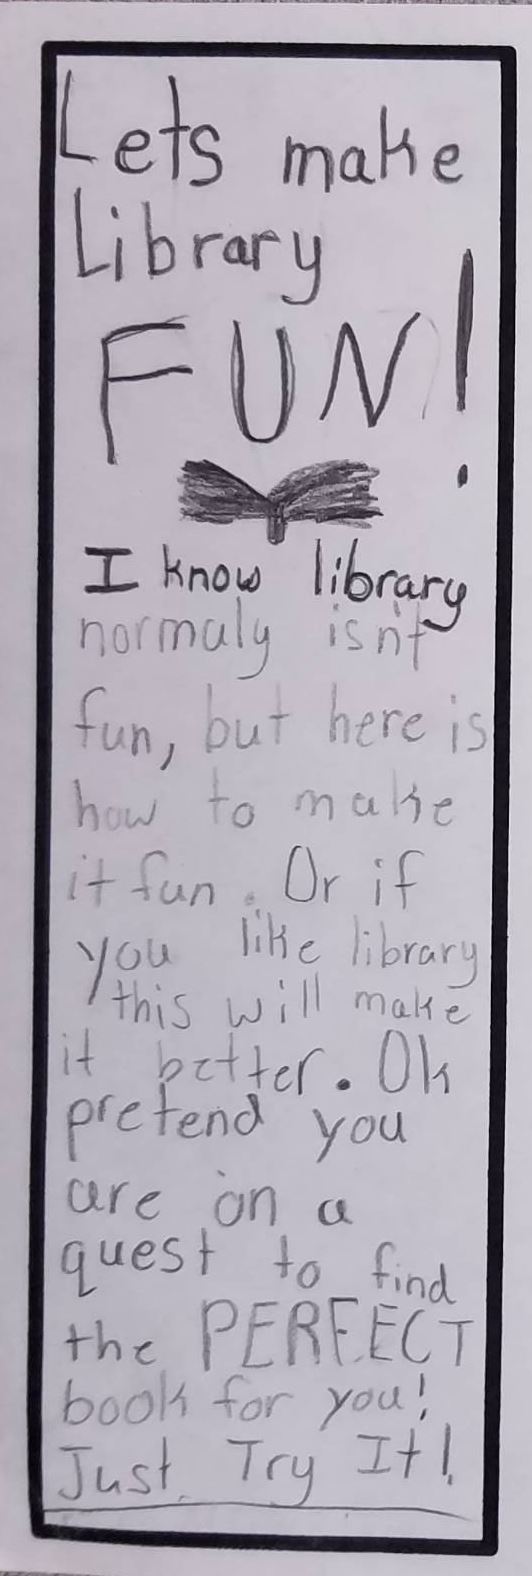 Lets make
Library
FUN!
I know library
normaly isn't
fun, but here is
how to make
it fun. Or if
you like library
this will make
it better. Ok
pretend you
are on a
quest to find
the PERFECT
book for you!
Just Try It!